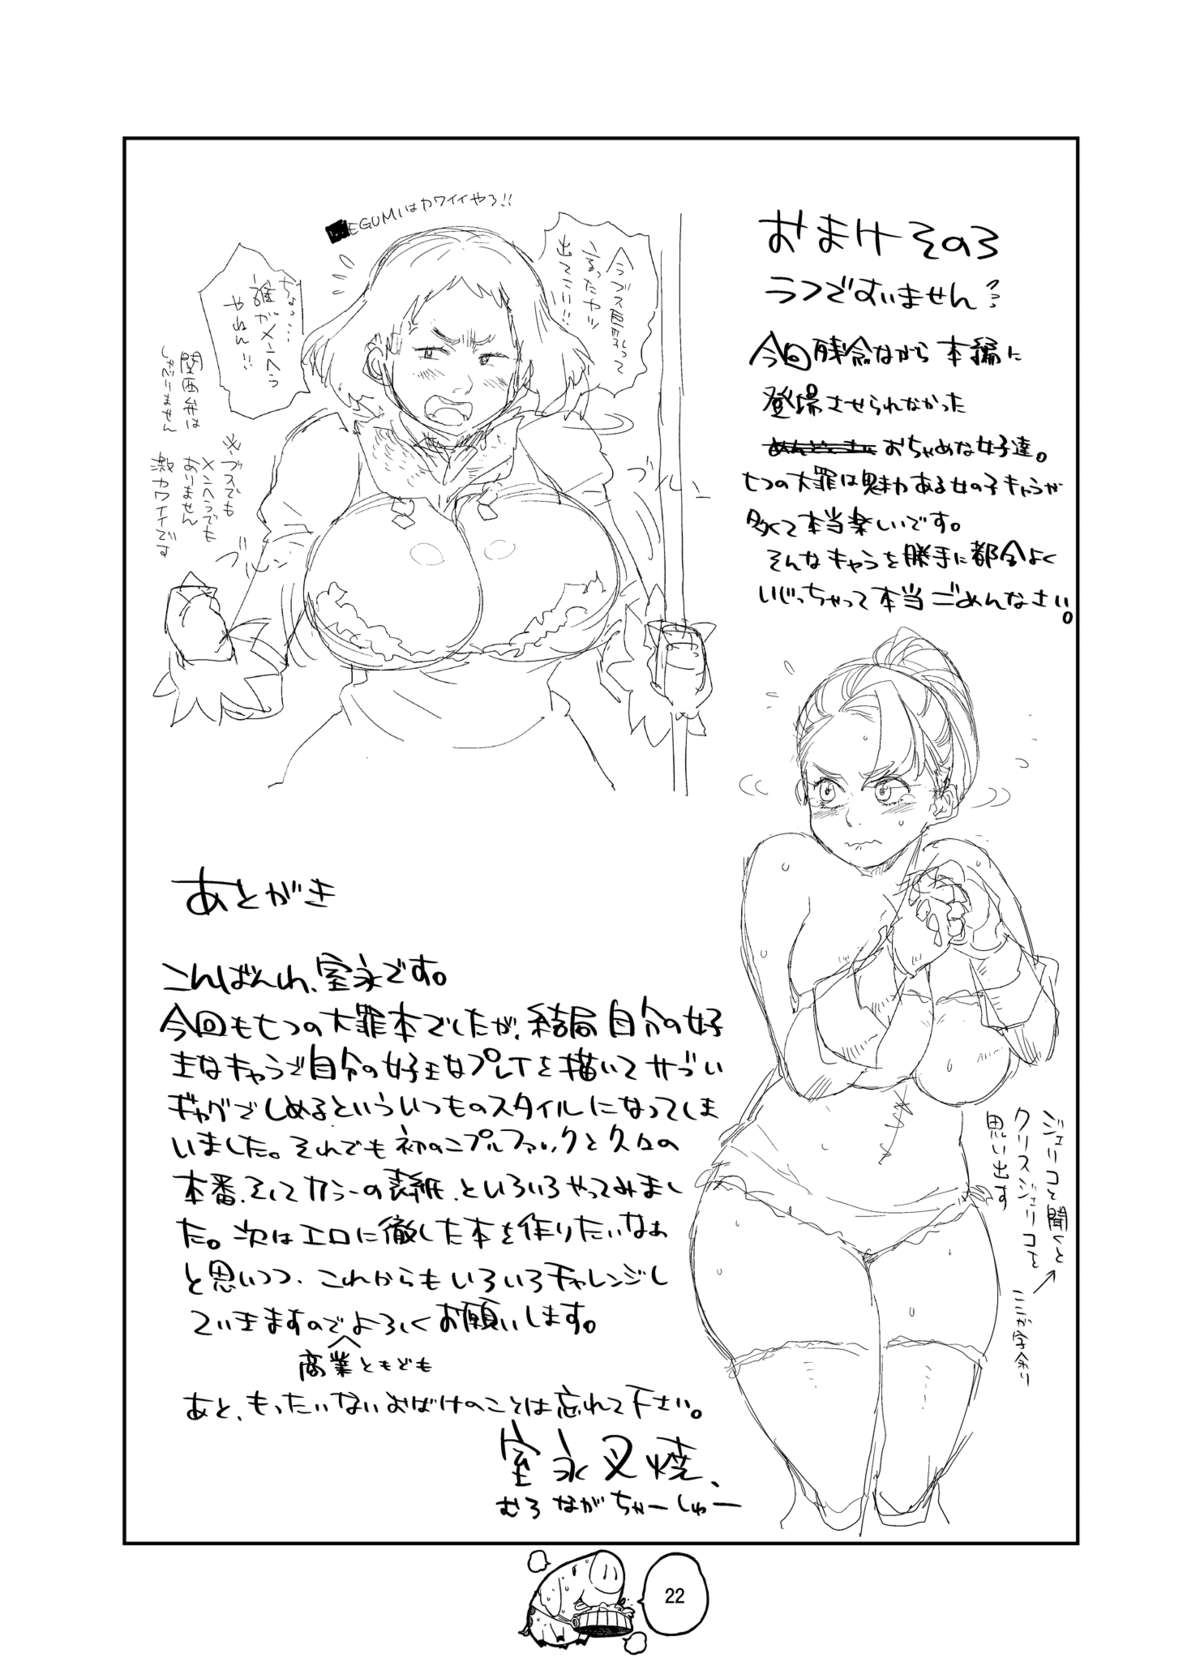 おまけその3
ラフですいません
今回残念ながら本編に
登場させられなかった
おちゃめな女子達。
七つの大罪は魅力ある女の子キャラが
多くて本当楽しいです。
そんなキャラを勝手に都合よく
いじっちゃって本当ごめんなさい。
EGUMIはカワイイやろ!!
今ブス専用って
言ったヤツ
出てこい!!
ちょっ…
誰がメンヘラ
やねん!!
関西弁は
しゃべりません
※ブスでも
メンヘラでも
ありません
激カワイイです
ブルン
ブルン
あとがき
こんばんわ、室永です。
今回も七つの大罪本でしたが、結局自分の好
きなキャラで自分の好きなプレイを描いてサブい
ギャグでしめるといういつものスタイルになってしま
いました。それでも初のニプルファックと久々の
本番、そしてカラーの表紙、といろいろやってみまし
た。次はエロに徹した本を作りたいなぁ
と思いつつ、これからもいろいろチャレンジし
ていきますのでよろしくお願いします。
商業ともども
あと、もったいないおばけのことは忘れて下さい。
室永叉焼、
むろながちゃーしゅー
ジェリコと聞くと
クリスジェリコを
思い出す
ここが字余り
22